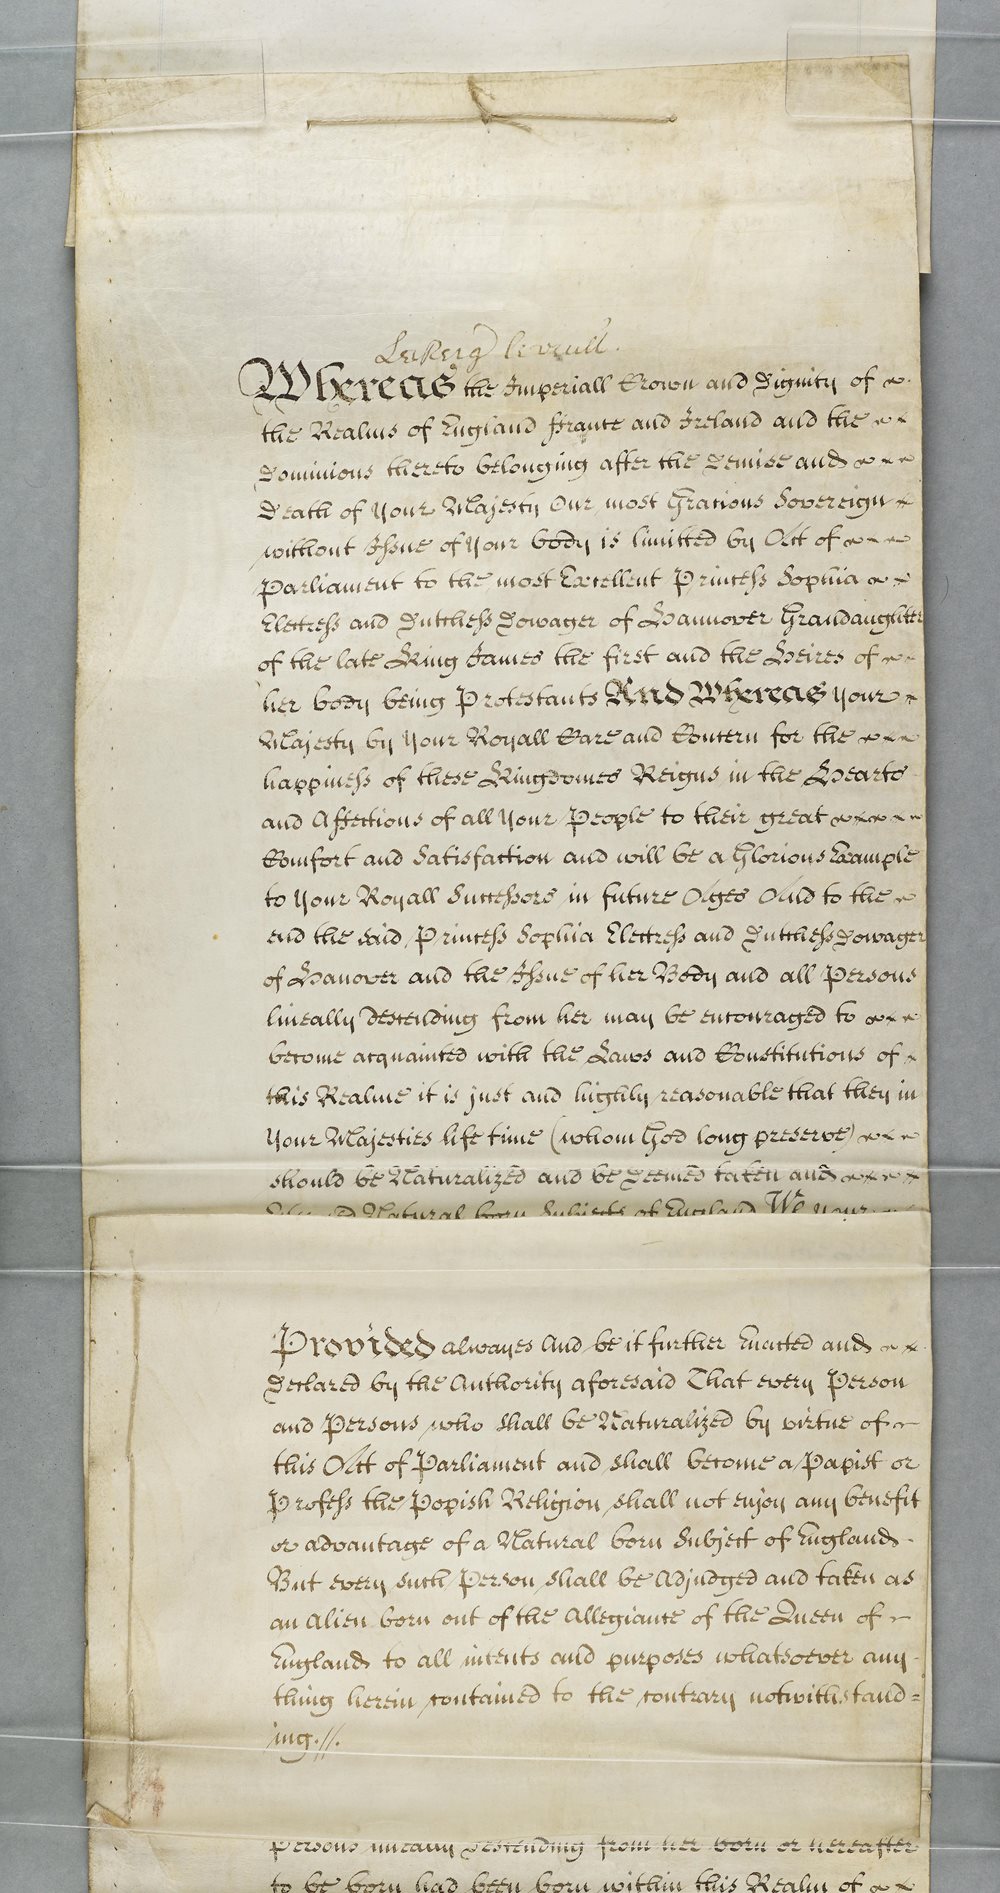 Le Reyne le veult.
Whereas the Imperiall Crown and Dignity of
the Realms of England ffrance and Ireland and the
Dominions thereto belonging after the Demise and
Death of Your Majesty Our most Gracious Sovereign
without Issue of Your body is limitted by Act of
Parliament to the most Excellent Princess Sophia
Electress and Dutchess Dowager of Hannover Grandaughter
of the late King James the first and the Heires of
her body being Protestants And Whereas Your
Majesty by Your Royall Care and Concern for the
happiness of these Kingdomes Reigns in the Hearts
and Affections of all Your People to their great
Comfort and Satisfaction and will be a Glorious Example
to Your Royall Successors in future Ages And to the
end the said Princess Sophia Electress and Dutchess Dowager
of Hanover and the Issue of her Body and all Persons
lineally Descending from her may be encouraged to
become acquainted with the Laws and Constitutions of
this Realme it is just and highly reasonable that they in
Your Majesties life time (whom God long preserve)
should be Naturalized and be Deemed taken and
Natural born Subjects of England We Your
Provided alwayes And be it further Enacted and
Declared by the Authority aforesaid That every Person
and Persons who shall be Naturalized by virtue of
this Act of Parliament and shall become a Papist or
Profess the Popish Religion shall not enjoy any benefit
or advantage of a Natural born Subject of England
But every such Person shall be Adjudged and taken as
an Alien born out of the Allegiance of the Queen of
England to all intents and purposes whatsoever any
thing herein contained to the contrary notwithstand=
ing.//.
Persons lineally Descending from her born or hereafter
to be born had been born within this Realm of